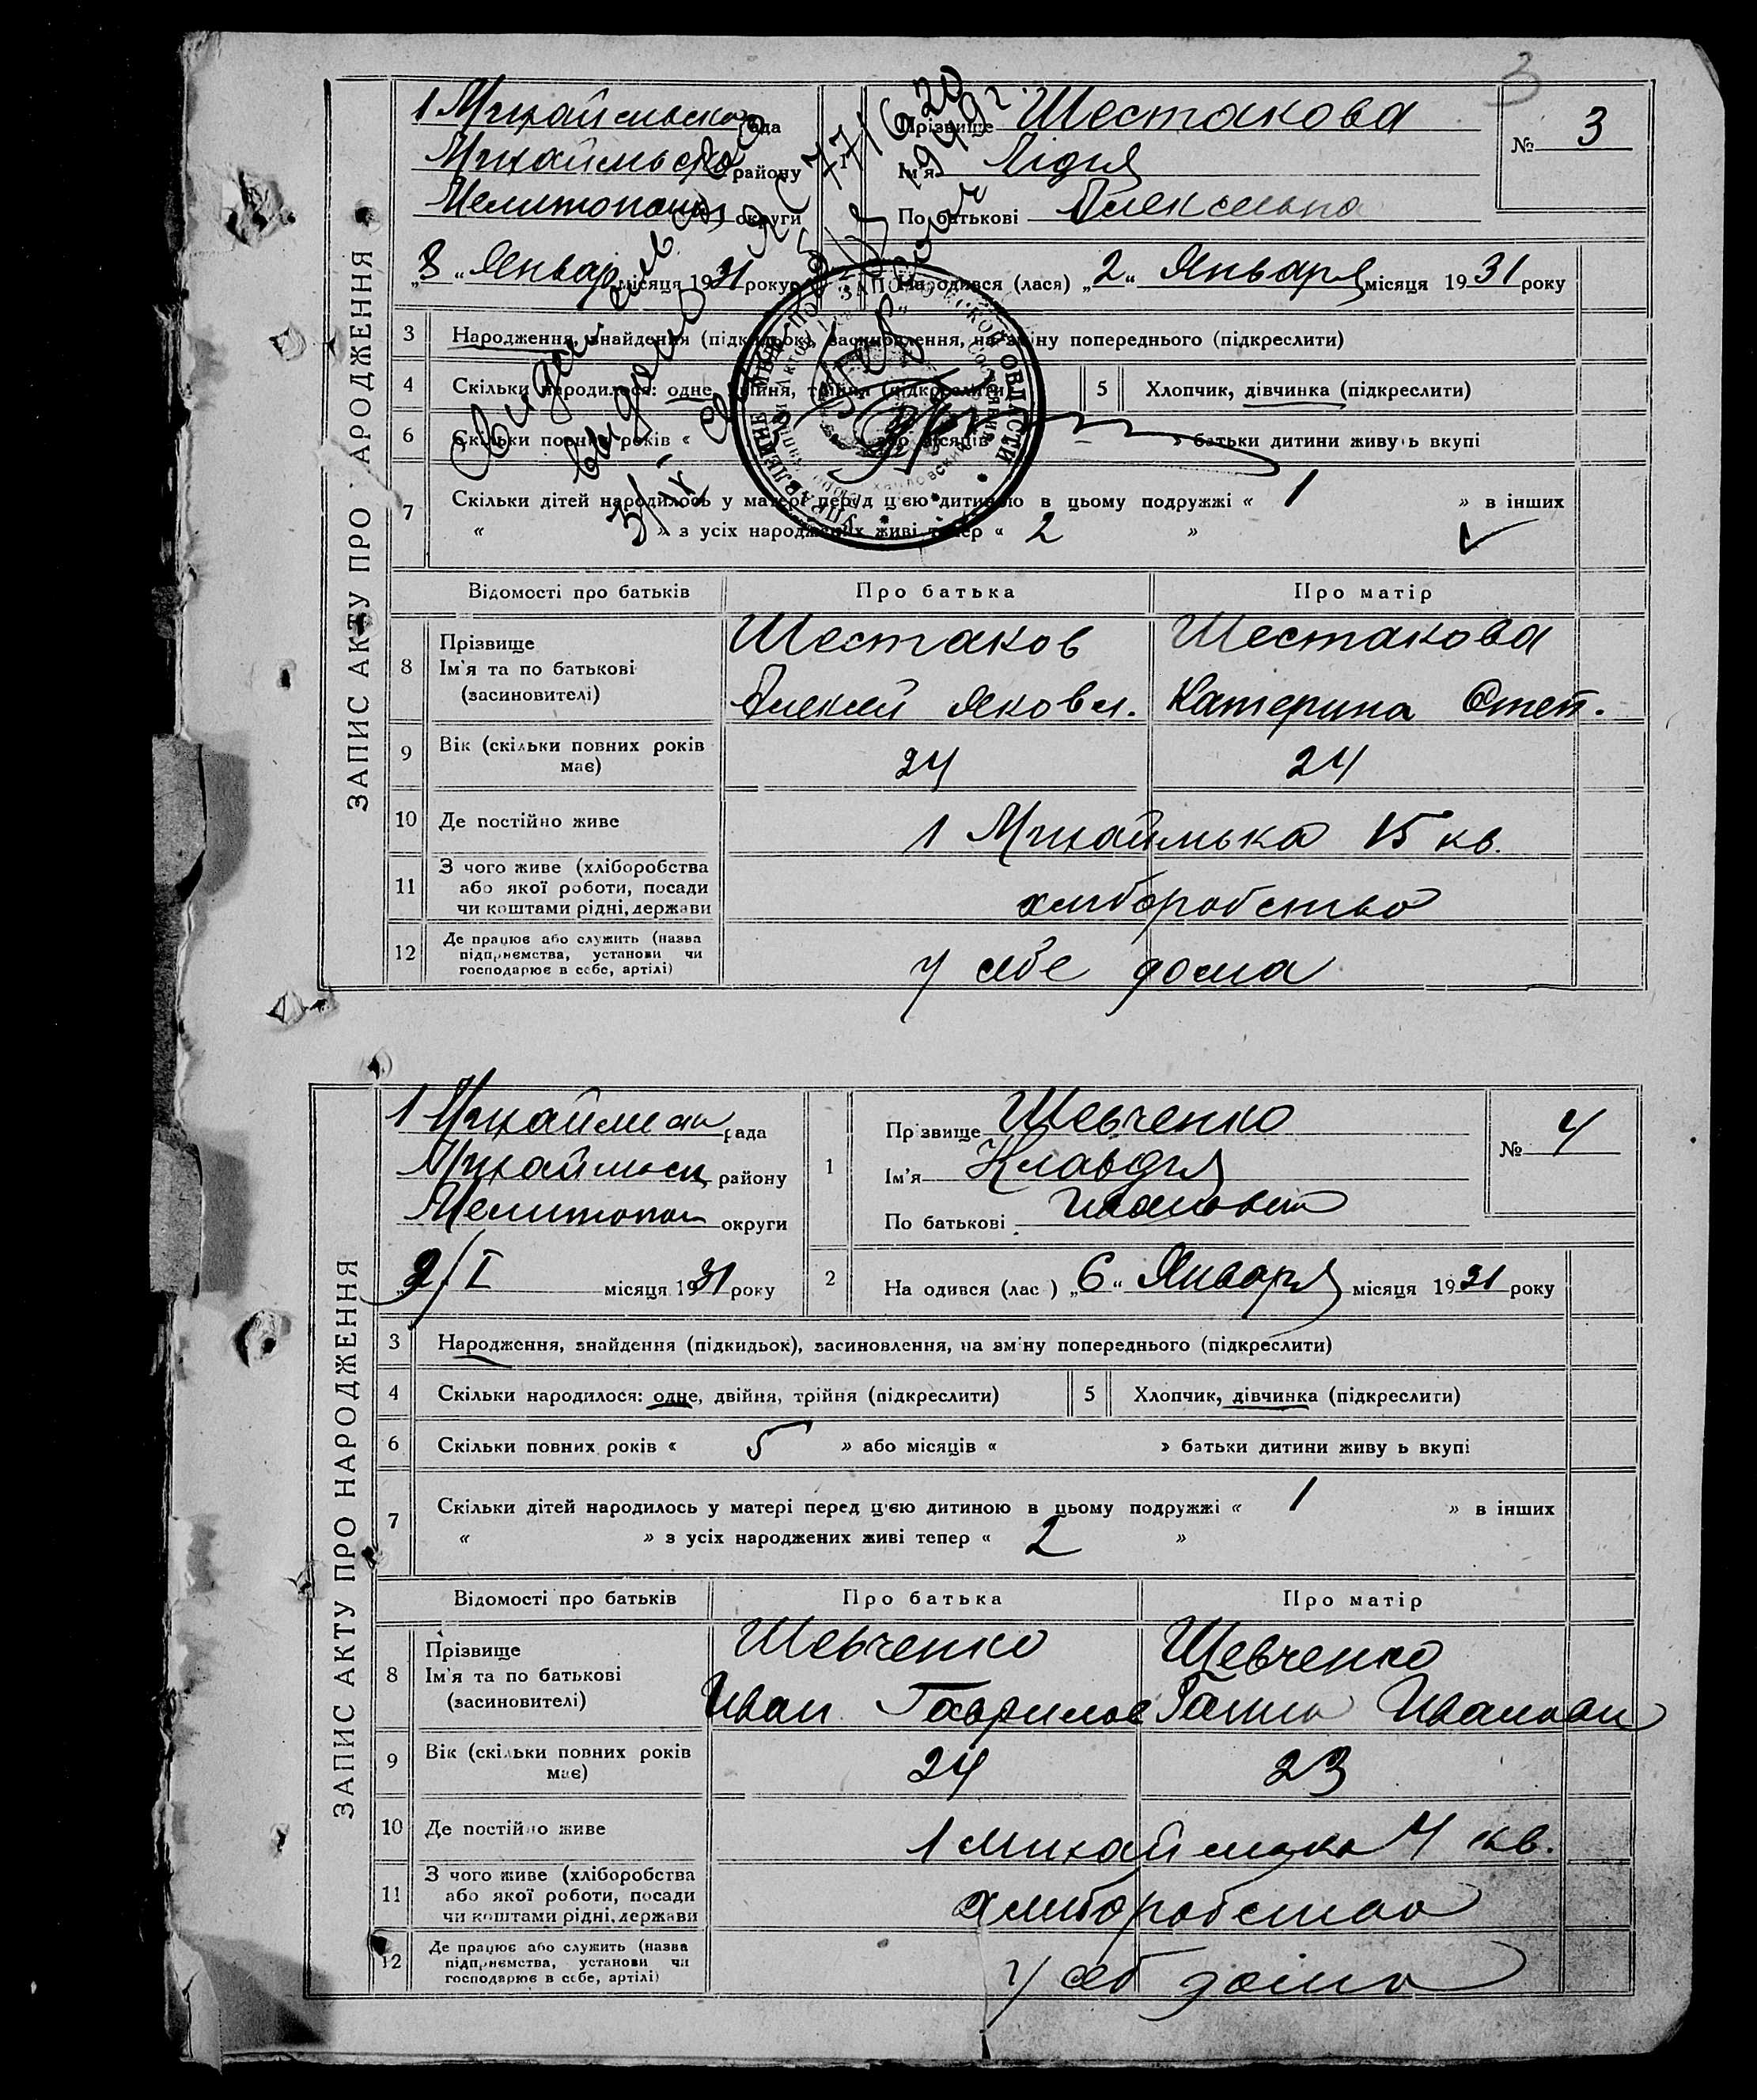 3
ЗАПИС АКТУ ПРО НАРОДЖЕННЯ
1 Михайлівська рада
Михайлівско району
Мелитопол округи
1
Прізвище Шестакова
Ім'я Лідия
По батькові Алексеевна
№ 3
„3„ Январ місяця 1931 року
Народився (лася) „2„ Января місяця 1931 року
3 Народження, знайдення (підкидьок), засиновлення, на зміну попереднього (підкреслити)
4 Скільки народилося: одне, двійня, трійня (підкреслити)
5 Хлопчик, дівчинка (підкреслити)
6 Скільки повних років « » або місяців « – » батьки дитини живуть вкупі
7 Скільки дітей народилось у матері перед цією дитиною в цьому подружжі « 1 » в інших
« » з усіх народжених живі тепер « 2 »
Відомості про батьків
Про батька
Про матір
8 Прізвище
Ім'я та по батькові
(засиновителі)
Шестаков
Алексей Яковл.
Шестакова
Катерина Степ.
9 Вік (скільки повних років має)
24
24
10 Де постійно живе
1 Михайлівка 15 кв.
11 З чого живе (хліборобства
або якої роботи, посади
чи коштами рідні, держави
хліборобство
12 Де працює або служить (назва
підприємства, установи чи
господарює в себе, артілі)
у себе дома
ЗАПИС АКТУ ПРО НАРОДЖЕННЯ
1 Михайлівська рада
Михайлівськ району
Мелитопол округи
1
Прізвище Шевченко
Ім'я Клавдия
По батькові Ивановна
№ 4
„9/I місяця 1931 року
2
Народився (лас ) „6„ Января місяця 1931 року
3 Народження, знайдення (підкидьок), засиновлення, на зміну попереднього (підкреслити)
4 Скільки народилося: одне, двійня, трійня (підкреслити)
5 Хлопчик, дівчинка (підкреслити)
6 Скільки повних років « 5 » або місяців « » батьки дитини живуть вкупі
7 Скільки дітей народилось у матері перед цією дитиною в цьому подружжі « 1 » в інших
« » з усіх народжених живі тепер « 2 »
Відомості про батьків
Про батька
Про матір
8 Прізвище
Ім'я та по батькові
(засиновителі)
Шевченко
Иван Гаврилов
Шевченко
Ганна Ивановн
9 Вік (скільки повних років
має)
24
23
10 Де постійно живе
1 Михайлівка 4 кв.
11 З чого живе (хліборобства
або якої роботи, посади
чи коштами рідні, держави
хліборобство
12 Де працює або служить (назва
підприємства, установи чи
господарює в себе, артілі)
у себ дома